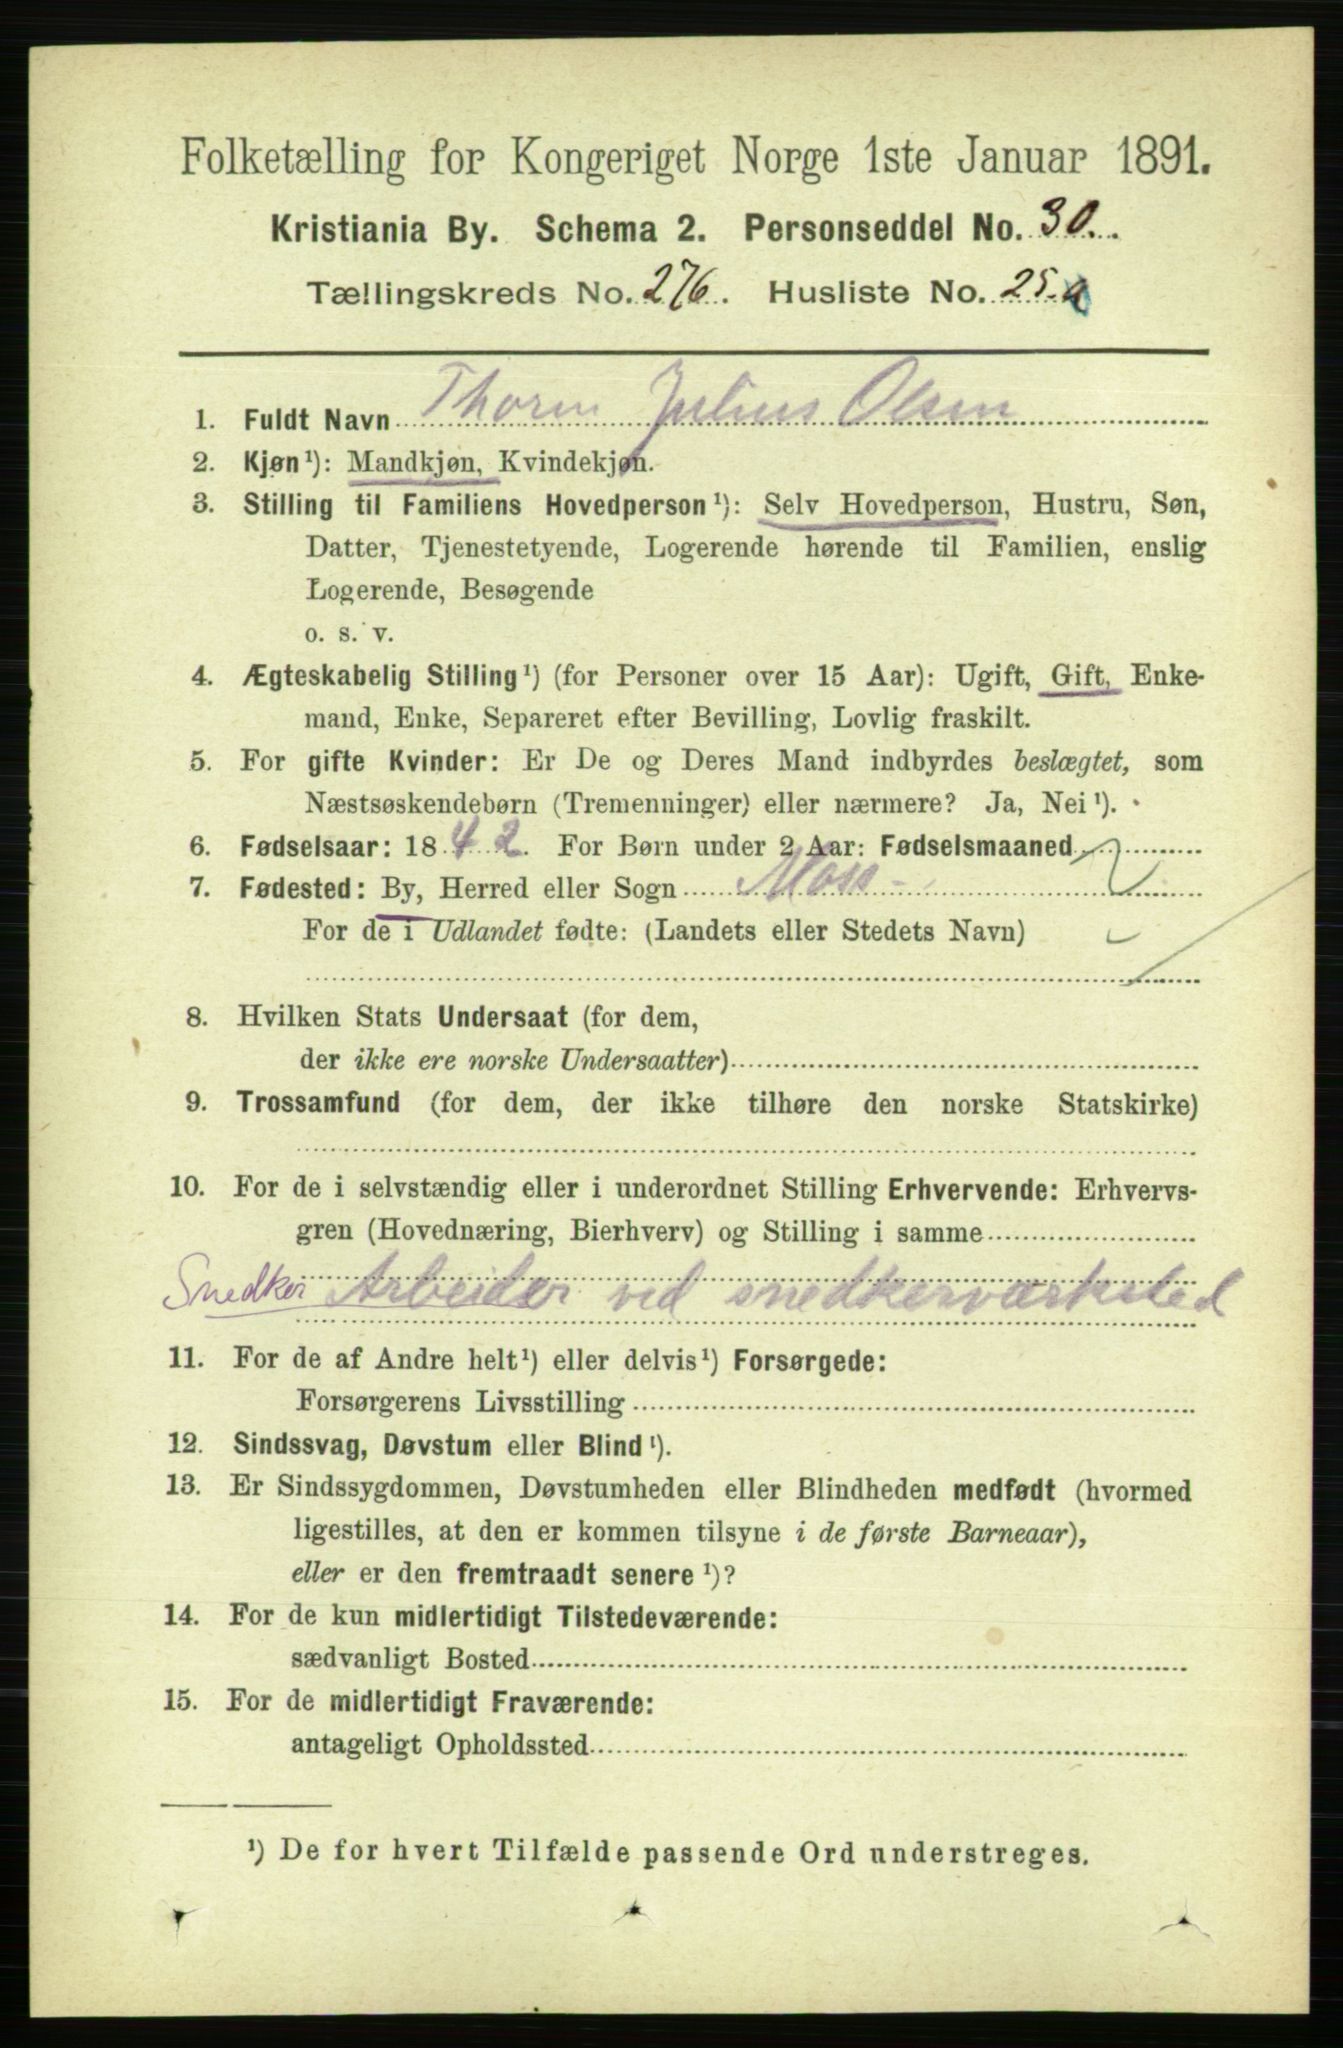 Folketælling for Kongeriget Norge 1ste Januar 1891.
Kristiania By. Schema 2. Personseddel No. 30.
Tællingskreds No. 276. Husliste No. 25.a
1. Fuldt Navn Julius Olsen
2. Kjøn¹): Mandkjøn, Kvindekjøn.
3. Stilling til Familiens Hovedperson¹): Selv Hovedperson, Hustru, Søn,
Datter, Tjenestetyende, Logerende hørende til Familien, enslig
Logerende, Besøgende
o. s. v.
4. Ægteskabelig Stilling¹) (for Personer over 15 Aar): Ugift, Gift, Enke-
mand, Enke, Separeret efter Bevilling, Lovlig fraskilt.
5. For gifte Kvinder: Er De og Deres Mand indbyrdes beslægtet, som
Næstsøskendebørn (Tremenninger) eller nærmere? Ja, Nei¹).
6. Fødselsaar: 1842. For Børn under 2 Aar: Fødselsmaaned
7. Fødested: By, Herred eller Sogn Moss
For de i Udlandet fødte: (Landets eller Stedets Navn)
8. Hvilken Stats Undersaat (for dem,
der ikke ere norske Undersaatter)
9. Trossamfund (for dem, der ikke tilhøre den norske Statskirke)
10. For de i selvstændig eller i underordnet Stilling Erhvervende: Erhvervs-
gren (Hovednæring, Bierhverv) og Stilling i samme
Snedker Arbeider ved snedkerværksted
11. For de af Andre helt¹) eller delvis¹) Forsørgede:
Forsørgerens Livsstilling
12. Sindssvag, Døvstum eller Blind¹).
13. Er Sindssygdommen, Døvstumheden eller Blindheden medfødt (hvormed
ligestilles, at den er kommen tilsyne i de første Barneaar),
eller er den fremtraadt senere¹)?
14. For de kun midlertidigt Tilstedeværende:
sædvanligt Bosted
15. For de midlertidigt Fraværende:
antageligt Opholdssted
¹) De for hvert Tilfælde passende Ord understreges.